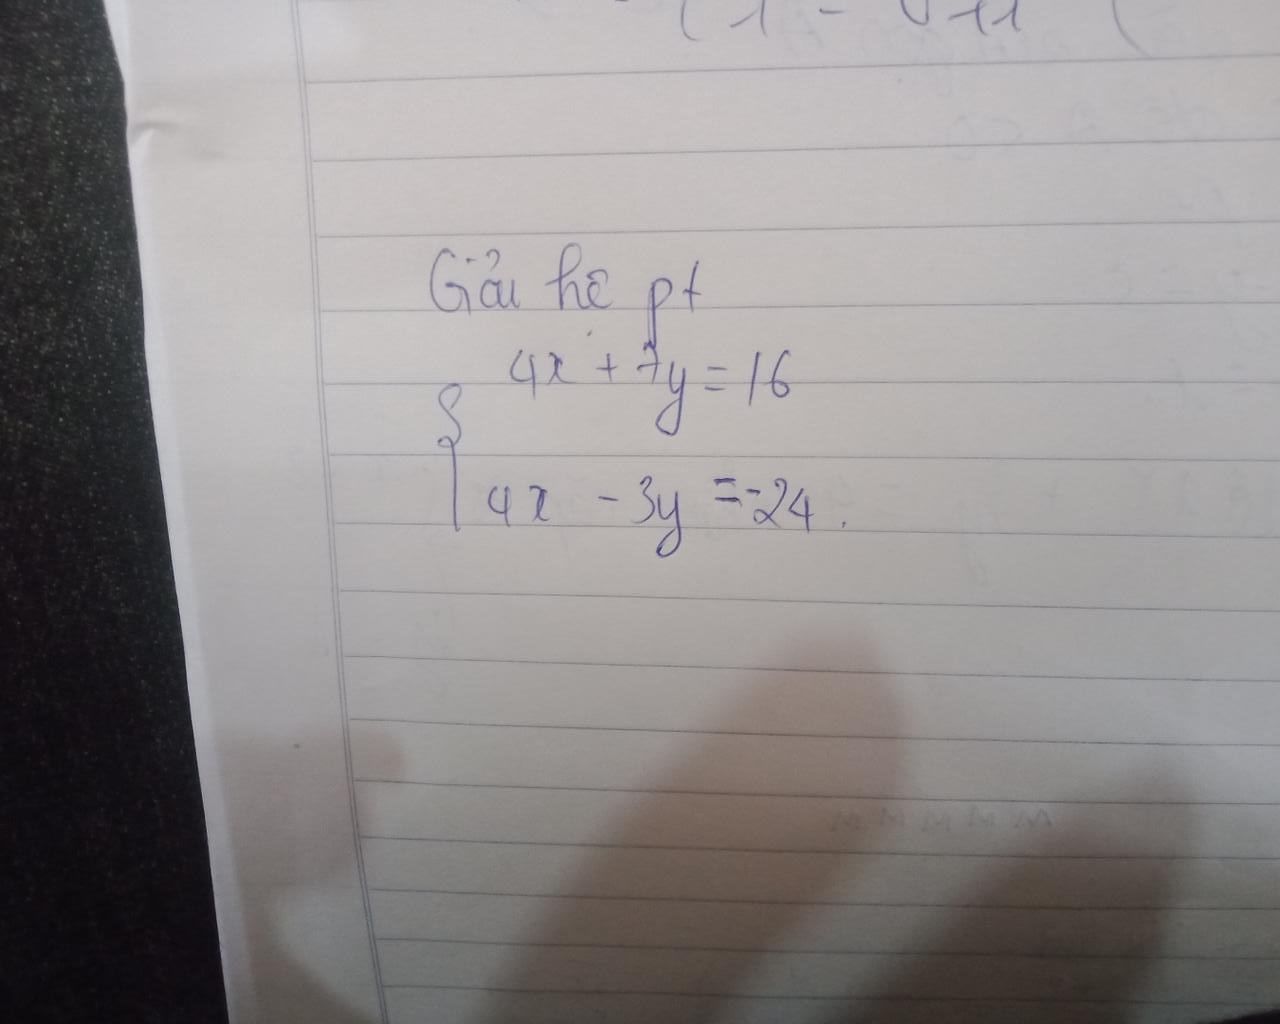 Giải hệ pt
4x + 7y = 16
{
4x - 3y = -24.